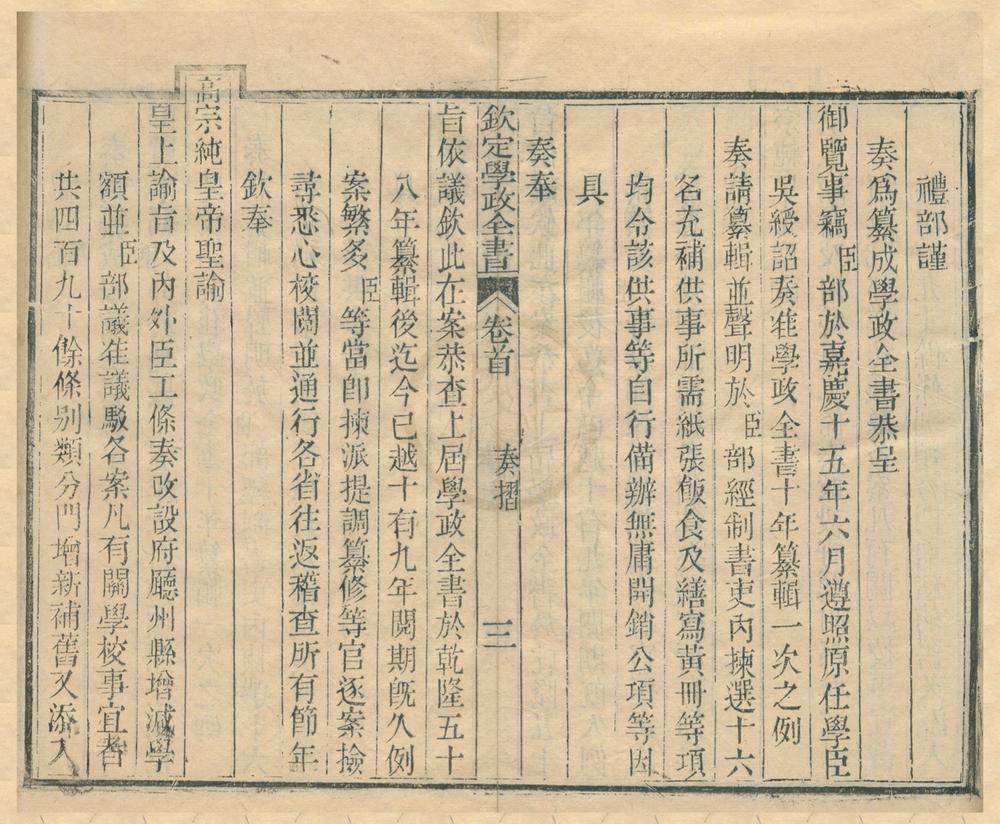 禮部謹
奏爲纂成學政全書恭呈
御覽事竊臣部於嘉慶十五年六月遵照原任學臣
吳綬詔奏准學政全書十年纂輯一次之例
奏請纂輯並聲明於臣部經制書吏內揀選十六
名充補供事所需紙張飯食及繕寫黃冊等項
均令該供事等自行備辦無庸開銷公項等因
具
奏奉
欽定學政全書 卷首 奏摺 三
旨依議欽此在案恭查上屆學政全書於乾隆五十
八年纂輯後迄今已越十有九年閱期旣久例
案繁多臣等當卽揀派提調纂修等官逐案撿
尋悉心校閱並通行各省往返稽查所有節年
欽奉
高宗純皇帝聖諭
皇上諭旨及內外臣工條奏改設府廳州縣增減學
額並臣部議准議駁各案凡有關學校事宜者
共四百九十餘條別類分門增新補舊又添入